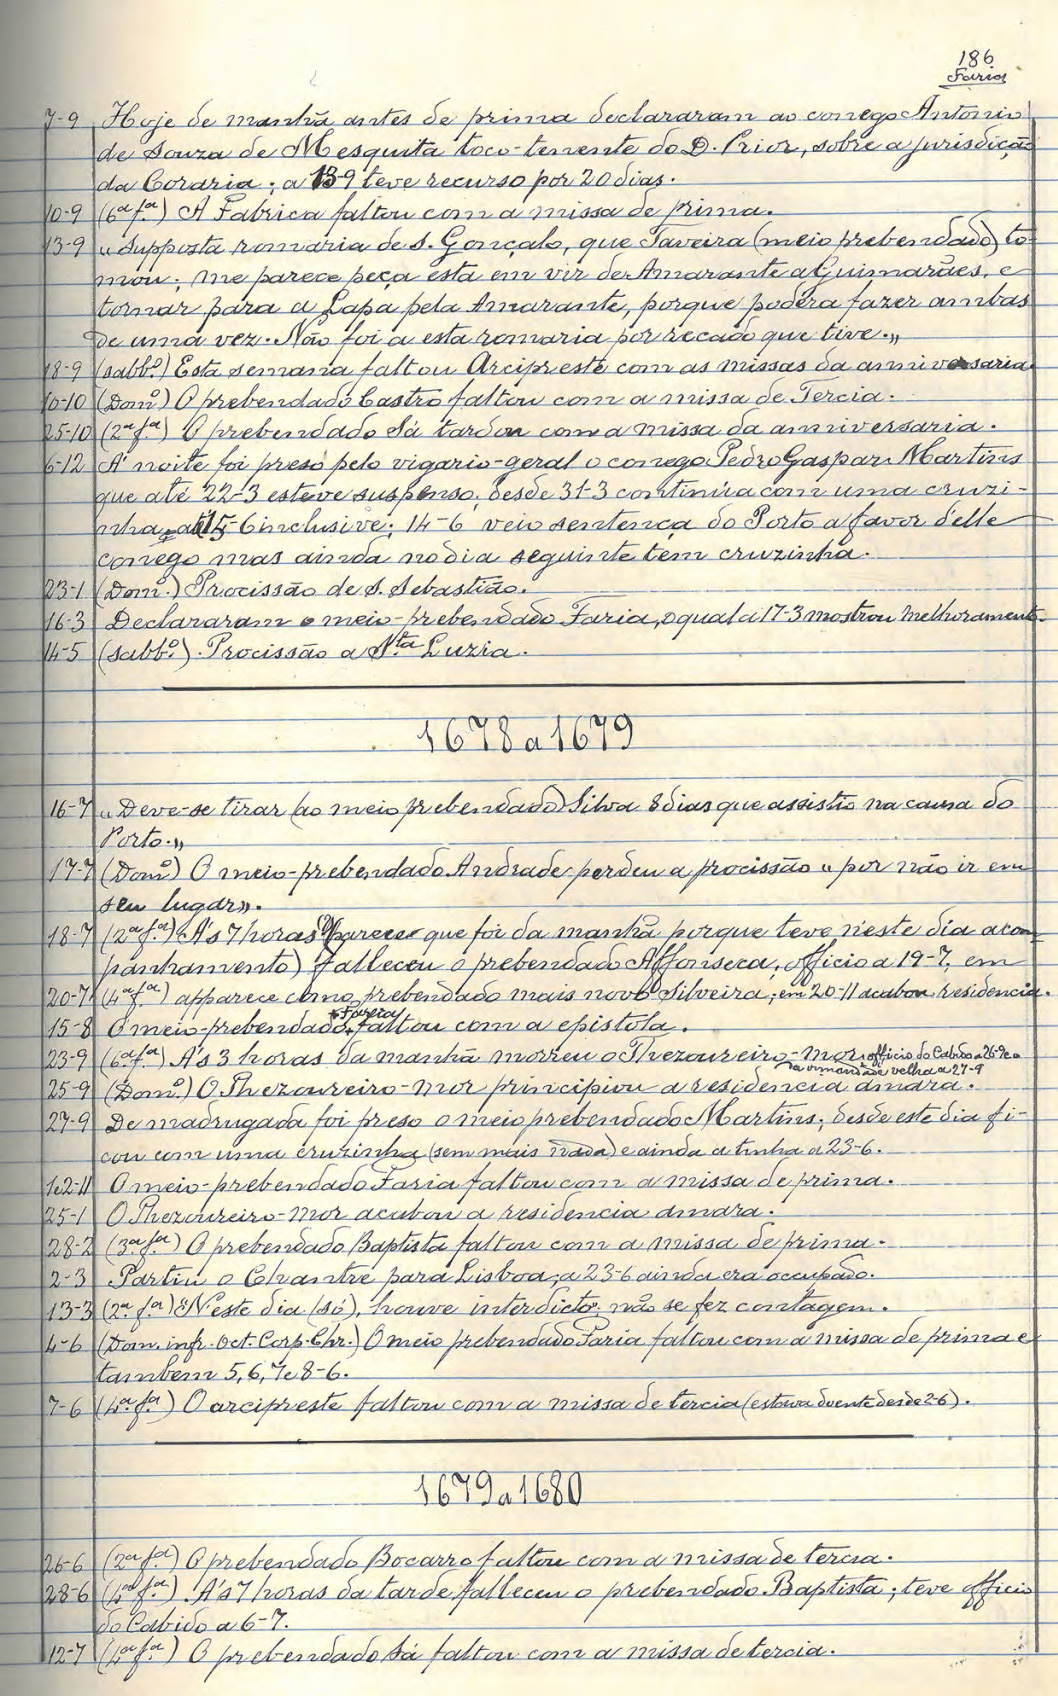 186
Faria
7-9 Hoje de manhã antes de prima declararam ao conego Antonio
de Souza de Mesquita loco-tenente do D. Prior, sobre a jurisdição
da Coraria; a 13-9 teve recurso por 20 dias.
10-9 (6ª fª.) A Fabrica faltou com a missa de prima.
13-9 «Supposta romaria de S. Gonçalo, que Taveira (meio prebendado) to-
mou; me parece peça esta em vir de Amarante a Guimarães, e
tornar para a Lapa pela Amarante, porque poderá fazer ambas
de uma vez. Não foi a esta romaria por recado que tive.»
18-9 (sabbº.) Esta semana faltou Arcipreste com as missas da anniversaria.
10-10 (Domº.) O prebendado Castro faltou com a missa de Tercia.
25-10 (2ª fª.) O prebendado Sá tardou com a missa da anniversaria.
6-12 Á noite foi preso pelo vigario-geral o conego Pedro Gaspar Martins
que até 22-3 esteve suspenso, desde 31-3 continúa com uma cruzi-
nha até 15-6 inclusive; 14-6 veio sentença do Porto a favor d'elle
conego mas ainda no dia seguinte tem cruzinha.
23-1 (Domº.) Procissão de S. Sebastião.
16-3 Declararam o meio-prebendado Faria, o qual a 17-3 mostrou melhoramento.
14-5 (sabbº.). Procissão a Stª Luzia.
1678 a 1679
16-7 «Deve-se tirar (ao meio prebendado) Silva 8 dias que assistio na causa do
Porto.»
17-7 (Domº) O meio-prebendado Andrade perdeu a procissão «por não ir em
seu lugar».
18-7 (2ª fª.) «Ás 7 horas» (parece que foi da manhã porque teve neste dia acom-
panhamento) falleceu o prebendado Affonseca, officio a 19-7, em
20-7 (4ª fª.) apparece como prebendado mais novo Silveira; em 20-11 acabou residencia.
15-8 O meio-prebendado Faria faltou com a epistola.
23-9 (6ª fª.) Ás 3 horas da manhã morreu o Thezoureiro-mor; officio do Cabido a 26-9 e o
da irmandade velha a 27-9
25-9 (Domº.) O Thezoureiro-mor principiou a residencia amara.
27-9 De madrugada foi preso o meio prebendado Martins; desde este dia fi-
cou com uma cruzinha (sem mais nada) e ainda a tinha a 23-6.
1e2-11 O meio-prebendado Faria faltou com a missa de prima.
25-1 O Thezoureiro-mor acabou a residencia amara.
28-2 (3ª fª.) O prebendado Baptista faltou com a missa de prima.
2-3 Partiu o Chantre para Lisboa; a 23-6 ainda era occupado.
13-3 (2ª fª.) «Neste dia (só), houve interdicto, não se fez contagem.
4-6 (Dom. infr. Oct. Corp. Chr.) O meio prebendado Faria faltou com a missa de prima e
tambem 5, 6, 7 e 8-6.
7-6 (4ª fª.) O arcipreste faltou com a missa de tercia (estava doente desde 2-6).
1679 a 1680
26-6 (2ª fª.) O prebendado Bocarro faltou com a missa de tercia.
28-6 (4ª fª.) Ás 7 horas da tarde falleceu o prebendado Baptista; teve officio
do Cabido a 6-7.
12-7 (4ª fª.) O prebendado Sá faltou com a missa de tercia.